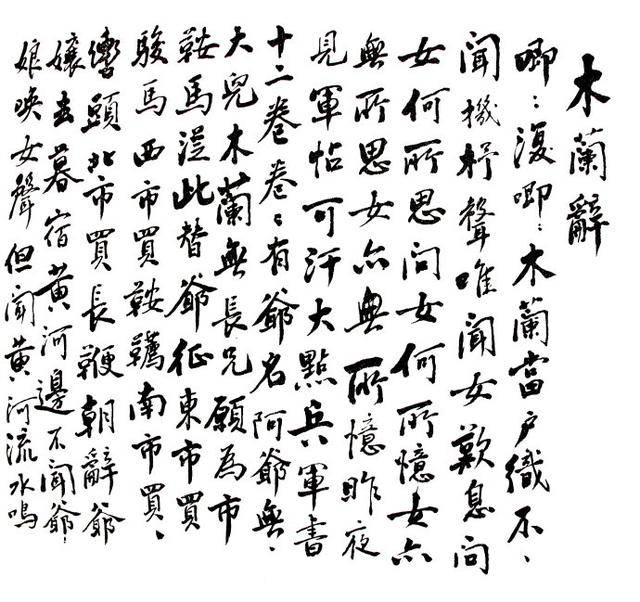 木蘭辭
唧:復唧:木蘭當户織不、
聞機杼聲唯聞女歎息問
女何所思問女何所憶女亦
無所思女亦無所憶昨夜
見軍帖可汗大點兵軍書
十二卷卷:有爺名阿爺無、
大兒木蘭無長兄願為市
鞍馬從此替爺征東市買
駿馬西市買鞍韉南市買、
轡頭北市買長鞭朝辭爺
孃去暮宿黃河邊不聞爺
娘喚女聲但聞黃河流水鳴